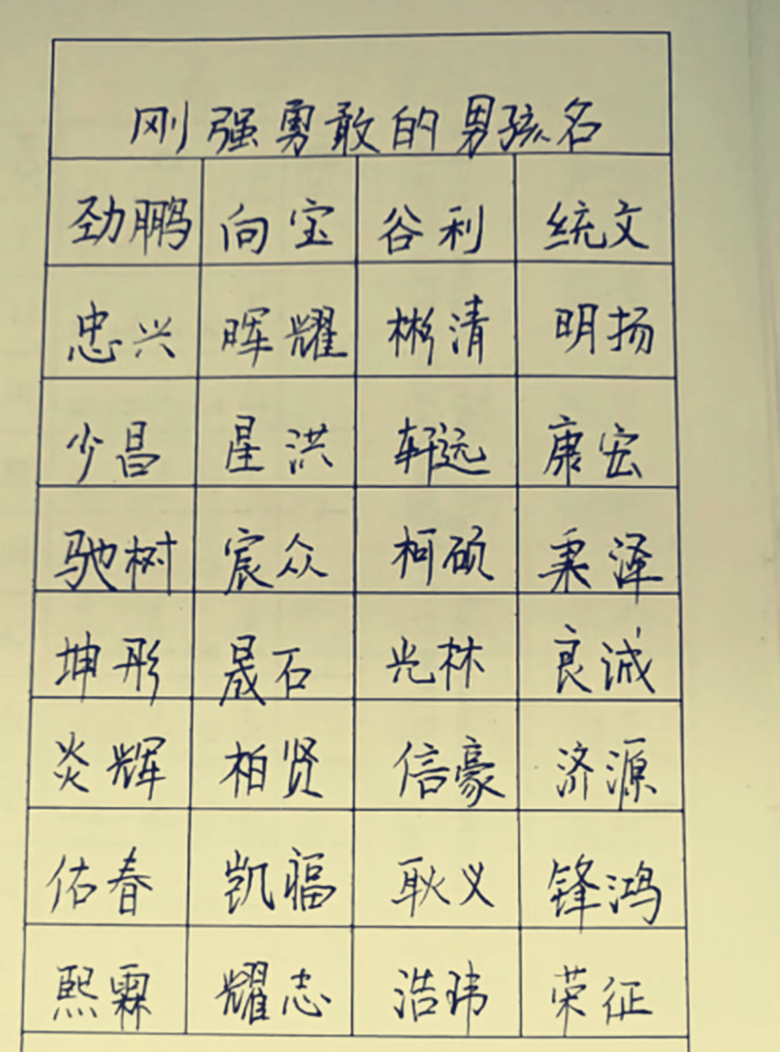 刚强勇敢的男孩名
劲鹏 向宝 谷利 统文
忠兴 晖耀 彬清 明扬
少昌 星洪 轩远 康宏
驰树 宸众 柯硕 秉泽
坤形 晟石 光林 良诚
炎辉 柏贤 信豪 济源
佑春 凯福 耿义 锋鸿
熙霖 耀志 浩玮 荣征